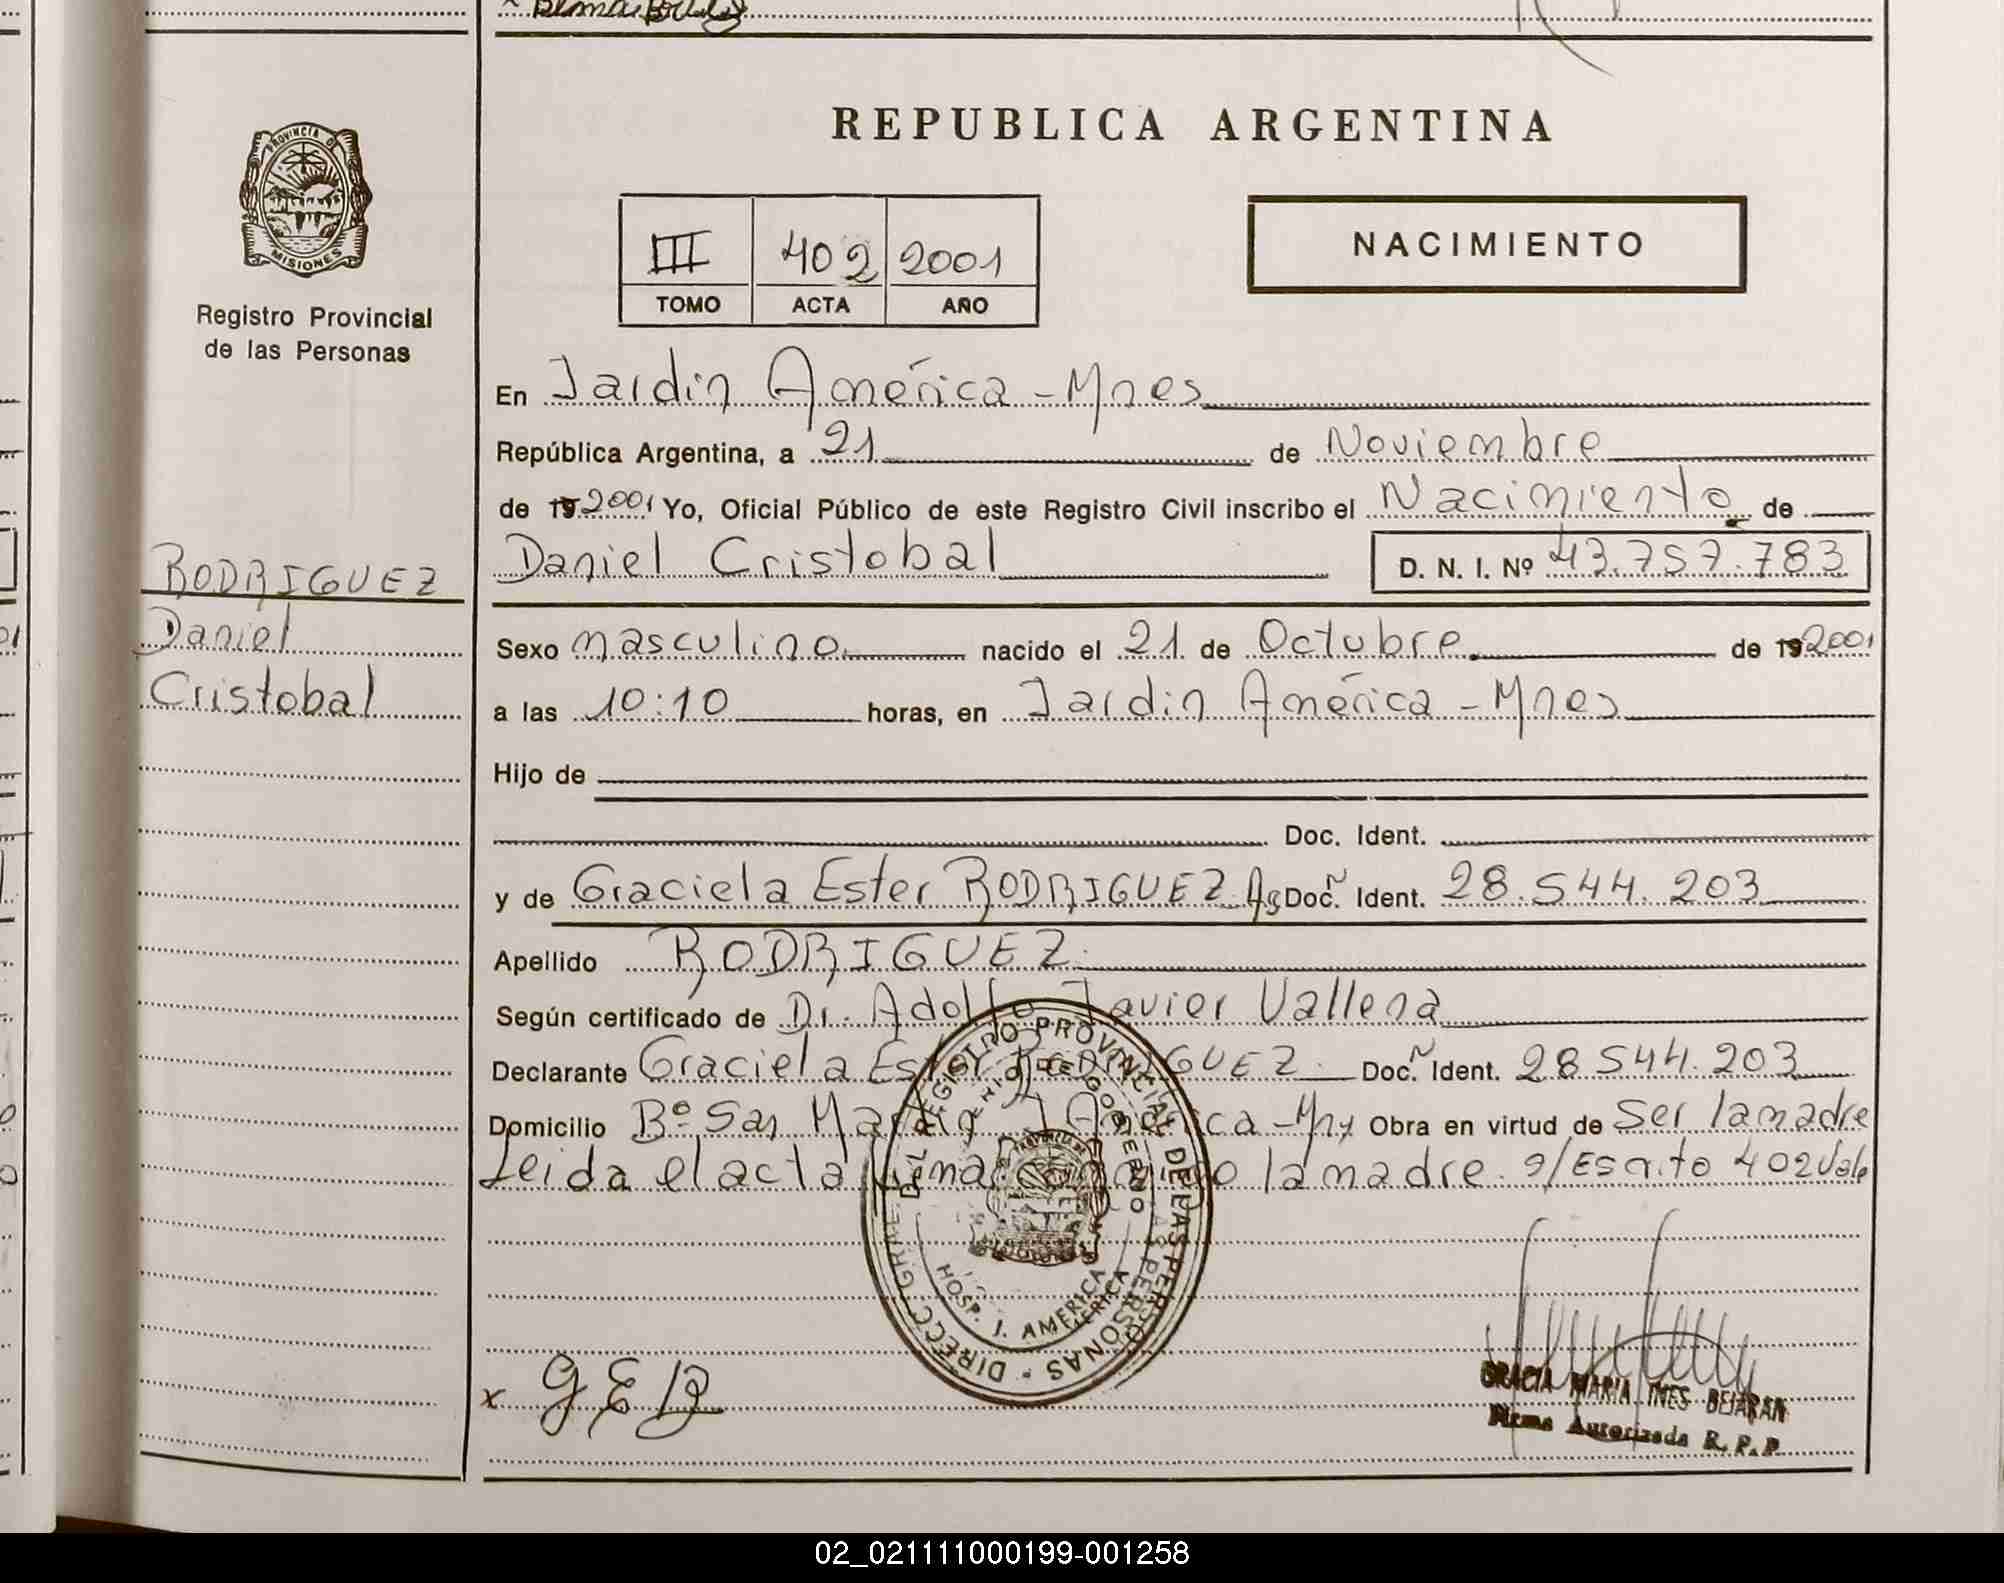 PROVINCIA DE
MISIONES
Registro Provincial
de las Personas
RODRIGUEZ
Daniel
Cristobal
REPUBLICA ARGENTINA
III 402 2001
TOMO ACTA AÑO
NACIMIENTO
En Jardín América - Mnes
República Argentina, a 21 de Noviembre
de 19 2001 Yo, Oficial Público de este Registro Civil inscribo el Nacimiento de
Daniel Cristobal D. N. I. Nº 43.757.783
Sexo masculino nacido el 21 de Octubre de 19 2001
a las 10:10 horas, en Jardín América - Mnes
Hijo de
Doc. Ident.
y de Graciela Ester RODRIGUEZ Ag Doc. Ident. 28.544.203
Apellido RODRIGUEZ
Según certificado de Dr. Adolfo Javier Vallena
Declarante Graciela Ester RODRIGUEZ Doc. Ident. 28 544.203
Domicilio Bº San Martín J. América - Mny Obra en virtud de Ser la madre
Leida el acta firma la madre s/Escrito 402 Vale
DIRECC. GRAL. DEL REGISTRO PROVINCIAL DE LAS PERSONAS
HOSP. J. AMERICA
x GER
GRACIA MARIA INES BEJARAN
Firma Autorizada R. P. P.
02_021111000199-001258